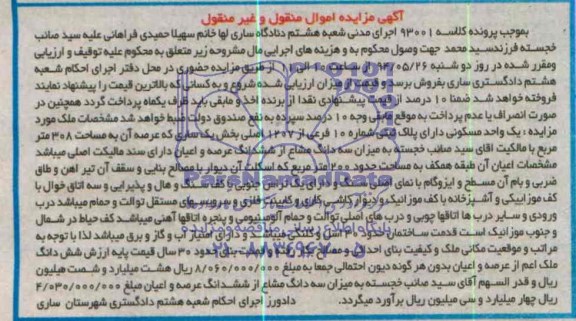 آگهی مزایده اموال منقول و غیر منقول
بموجب پرونده کلاسه ۹۳۰۰۱ اجرای مدنی شعبه هشتم دادگاه ساری لها خانم سهیلا حمیدی فراهانی علیه سید صائب
خجسته فرزند سید محمد جهت وصول محکوم به و هزینه های اجرایی مال مشروحه زیر متعلق به محکوم علیه توقیف و ارزیابی
ومقرر شده در روز دو شنبه ۹۳/۰۵/۲۶ ساعت ۱۰ الی ۱۱ از طریق مزایده حضوری در محل دفتر اجرای احکام شعبه
هشتم دادگستری ساری بفروش برسد و قیمت از میزان ارزیابی شده شروع و به کسانی که بالاترین قیمت را پیشنهاد نمایند
فروخته خواهد شد ضمنا ۱۰ درصد از قیمت پیشنهادی نقدا از برنده اخذ و مابقی باید ظرف یکماه پرداخت گردد همچنین در
صورت انصراف یا عدم پرداخت به موقع مابقی وجه ۱۰ درصد سپرده به نفع صندوق دولت ضبط خواهد شد مشخصات ملک مورد
مزایده : یک واحد مسکونی دارای پلاک ثبتی شماره ۱۰ فرعی از ۱۲۰۷ اصلی بخش یک ساری که عرصه آن به مساحت ۳۰۸ متر
مربع با مالکیت اقای سید صائب خجسته به میزان سه دانگ مشاع از ششدانگ عرصه و اعیان دارای سند مالکیت اصلی میباشد
مشخصات اعیان آن طبقه همکف به مساحت حدود ۲۰۰ متر مربع که اسکلت آن دیوار با مصالح بنایی و سقف آن تیر اهن و طاق
ضربی و بام آن مسطح و ایزوگام با نمای اصلی سنگ و دارای یک تراس جنوبی و کف سنگ و هال و پذیرایی و سه اتاق خوال با
کف موزائیکی و آشپزخانه با کف موزائیک و دیوار کاشی کاری و کابینت فلزی و سرویسهای مستقل توالت و حمام میباشد درب
ورودی و سایر درب ها اتاقها چوبی و درب های اصلی توالت و حمام آلومینیومی و پنجره اتاقها آهنی میباشد کف حیاط در شمال
و جنوب موزائیک است قدمت ساختمان حدود ۳۰ سال و کلنگی میباشد و دارای امتیاز آب و گاز و برق میباشد لذا با توجه به
مراتب و موقعیت مکانی ملک و کیفیت بنای احداثی و مصالح بکار رفته و قدمت بنای حدود ۳۰ سال قیمت پایه ارزش شش دانگ
ملک اعم از عرصه و اعیان بدون هر گونه دیون احتمالی جمعا به مبلغ ۸/۰۶۰/۰۰۰/۰۰۰ ریال هشت میلیارد و شصت میلیون
ریال و قدر السهم آقای سید صائب خجسته به میزان سه دانگ مشاع از ششدانگ عرصه و اعیان مبلغ ۴/۰۳۰/۰۰۰/۰۰۰
ریال چهار میلیارد و سی میلیون ریال برآورد میگردد. دادورز اجرای احکام شعبه هشتم دادگستری شهرستان ساری
ParsNamadData